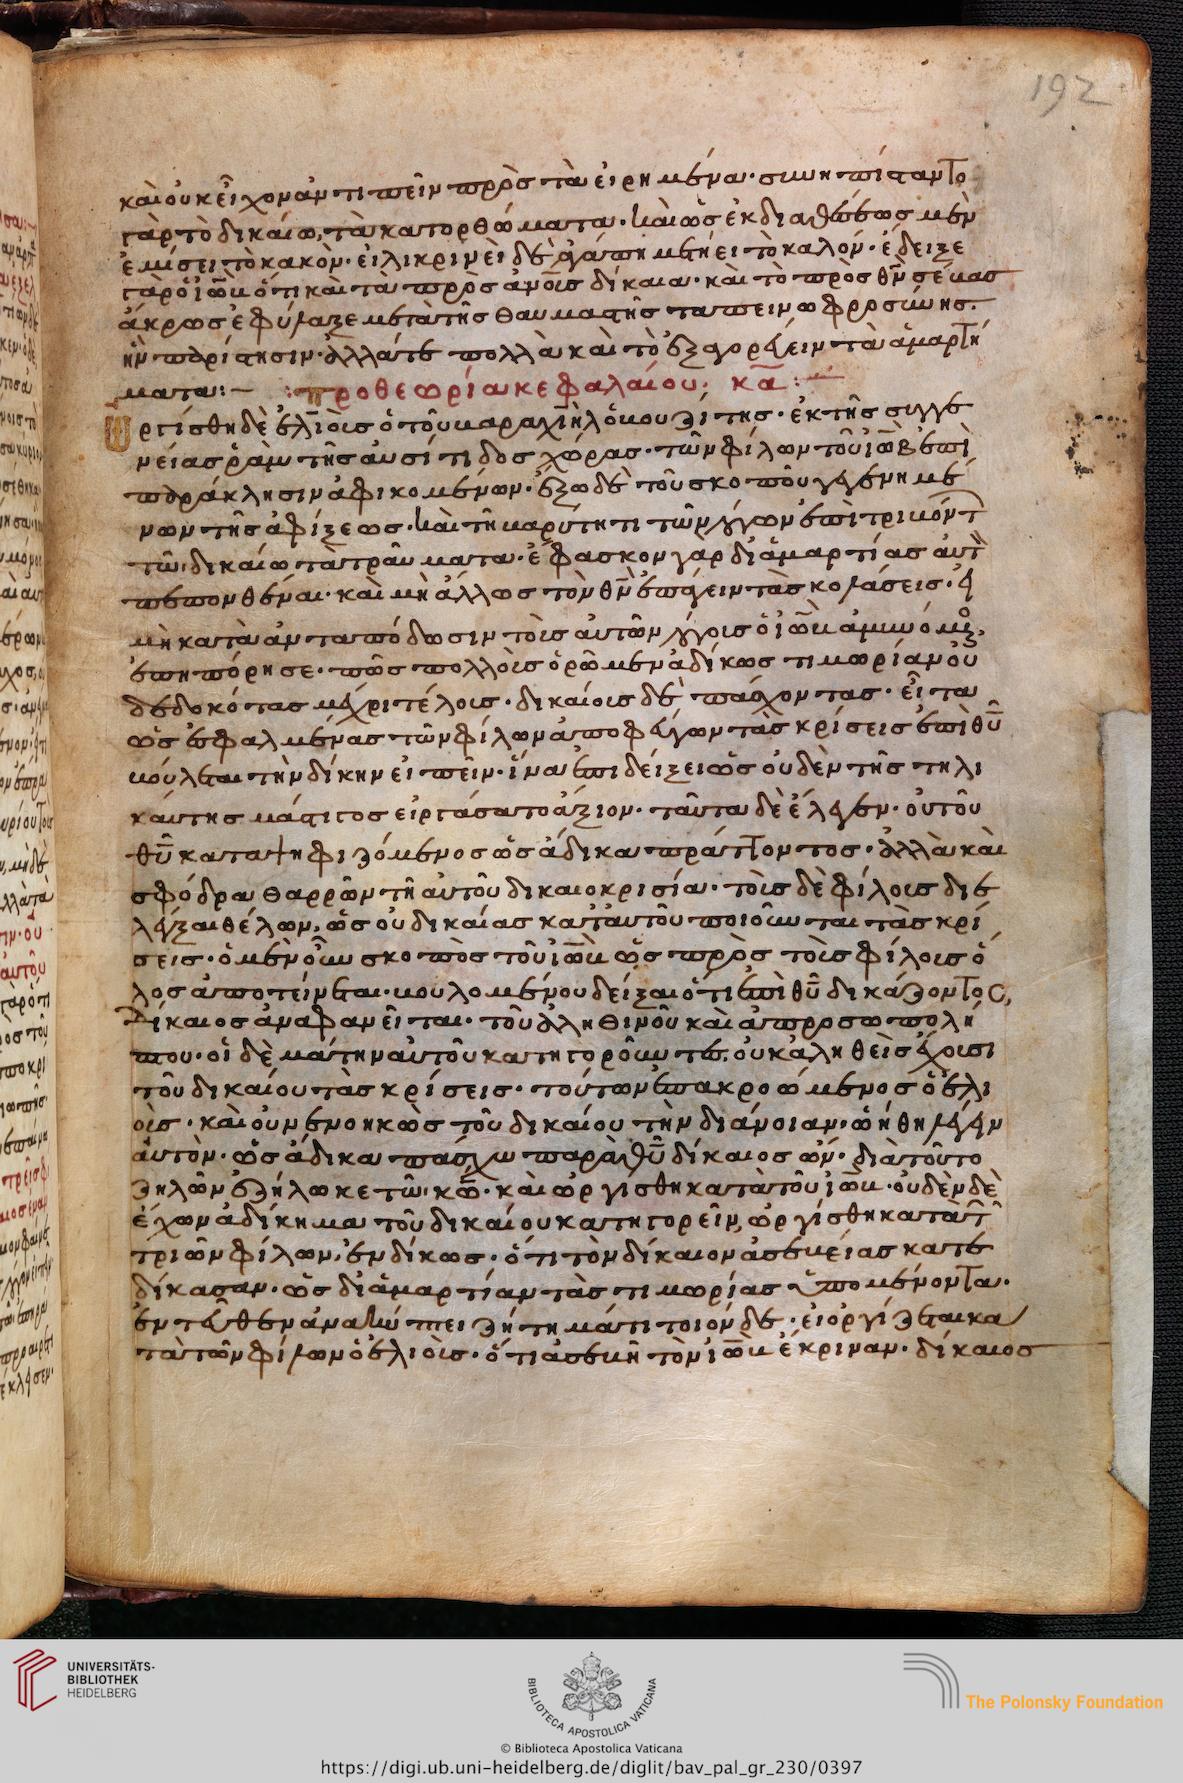 192
καὶ οὐκ εἶχον ἀντιπεῖν πρὸς τὰ εἰρημένα· συνηπίσταντο
γὰρ τὸ δικαίω, τὰ κατορθώματα· καὶ ὡς ἐκ διαθέσεως μὲν
ἐμίσει τὸ κακὸν· εἰλικρινεῖ δὲ ἀγάπη μετήει τὸ καλόν· ἔδειξε
γὰρ ὁ ἰὼβ ὅτι καὶ τὰ πρὸς ἀνοις δίκαια· καὶ τὸ πρὸς θν σέβας
ἄκρως ἐφύλαξε μετὰ τῆς θαυμαστῆς ταπεινοφροσύνης·
ματα:~ :προθεωρία κεφαλαίου· κα:~
ὠργίσθη δὲ ἐλιοῖς ὁ τοῦ βαραχιὴλ ὁ βουζίτης· ἐκ τῆς συγγε
νείας ῥὰμ τῆς αὐσίτιδος χώρας· τῶν φίλων τοῦ ἰὼβ ἐπὶ
παράκλησιν ἀφικομένων· ἔξω δὲ τοῦ σκοποῦ γεγενημέ
νων τῆς ἀφίξεως· καὶ τῆ βαρύτητι τῶν λόγων ἐπιτριβόντ
τῶ δικαίω τὰ τραύματα· ἔφασκον γὰρ δι ἁμαρτίας αὐτὰ
πεπονθέναι· καὶ μὴ ἄλλως τὸν θν ἐπάγειν τὰς κολάσεις· εἰ
μὴ κατὰ ἀνταπόδωσιν τοῖς αὐτῶν λόγοις ὁ ἰὼβ ἀμυνόμε,
ἐπηπόρησε· πῶς πολλοῖς ὁρῶμεν ἀδίκως τιμωρίαν οὐ
δεδοκότας μέχρι τέλοις· δικαίοις δὲ πάσχοντας· εἶτα
ὡς ἐσφαλμένας τῶν φίλων ἀποφεύγων τὰς κρίσεις ἐπὶ θυ
βούλεται τὴν δίκην εἰπεῖν· ἵνα ἐπιδείξει ὡς οὐδὲν τῆς τηλι
καύτης μάστιγος εἰργάσατο ἄξιον· ταῦτα δὲ ἔλεγεν· οὐ τοῦ
θυ καταψηφιζόμενος ὡς ἄδικα πράττοντος· ἀλλὰ καὶ
σφόδρα θαρρῶν τῆ αὐτοῦ δικαιοκρισία· τοῖς δὲ φίλοις διε
λέγξαι θέλων, ὡς οὐ δικαίας κατ αὐτοῦ ποιοῦνται τὰς κρί
σεις· ὁ μὲν οὖν σκοπὸς τοῦ ἰὼβ ὡς πρὸς τοῖς φίλοις ὅ
λος ἀποτείνεται· βουλομένου δεῖξαι ὅτι ἐπὶ θυ δικάζοντος,
δίκαιος ἀναφανεῖται· τοῦ ἀληθινοῦ καὶ ἀπροσωπολή
που· οἱ δὲ μάτην αὐτοῦ κατηγοροῦντες, οὐκ ἀληθεῖς ἔχουσι
τοῦ δικαίου τὰς κρίσεις· τούτων ἐπακροώμενος ὁ ἐλι
οῖς· καὶ οὐ νενοηκὼς τοῦ δικαίου τὴν διάνοιαν· ὠήθη λέγειν
αὐτὸν· ὡς ἄδικα πάσχω παρὰ θυ δίκαιος ὤν· διὰ τοῦτο
ζηλῶν ἐζήλωκε τῶ κω· καὶ ὠργίσθη κατὰ τοῦ ἰὼβ· οὐδὲν δὲ
ἔχων ἀδίκημα τοῦ δικαίου κατηγορεῖν, ὠργίσθη κατὰ τ
τριῶν φίλων, ἐνδίκως· ὅτι τὸν δίκαιον ἀσεβείας κατε
δίκασαν· ὡς δι ἁμαρτίαν τὰς τιμωρίας ὑπομένοντα·
ἐντεῦθεν ἀνακύπτει ζήτημά τι τοιόνδε· εἰ ὀργίζεται κα
τὰ τῶν φίλων ὁ ἐλιοῖς· ὅτι ἀσεβῆ τὸν ἰὼβ ἔκριναν· δίκαιος
UNIVERSITÄTS-
BIBLIOTHEK
HEIDELBERG
BIBLIOTECA APOSTOLICA VATICANA
The Polonsky Foundation
© Biblioteca Apostolica Vaticana
https://digi.ub.uni-heidelberg.de/diglit/bav_pal_gr_230/0397